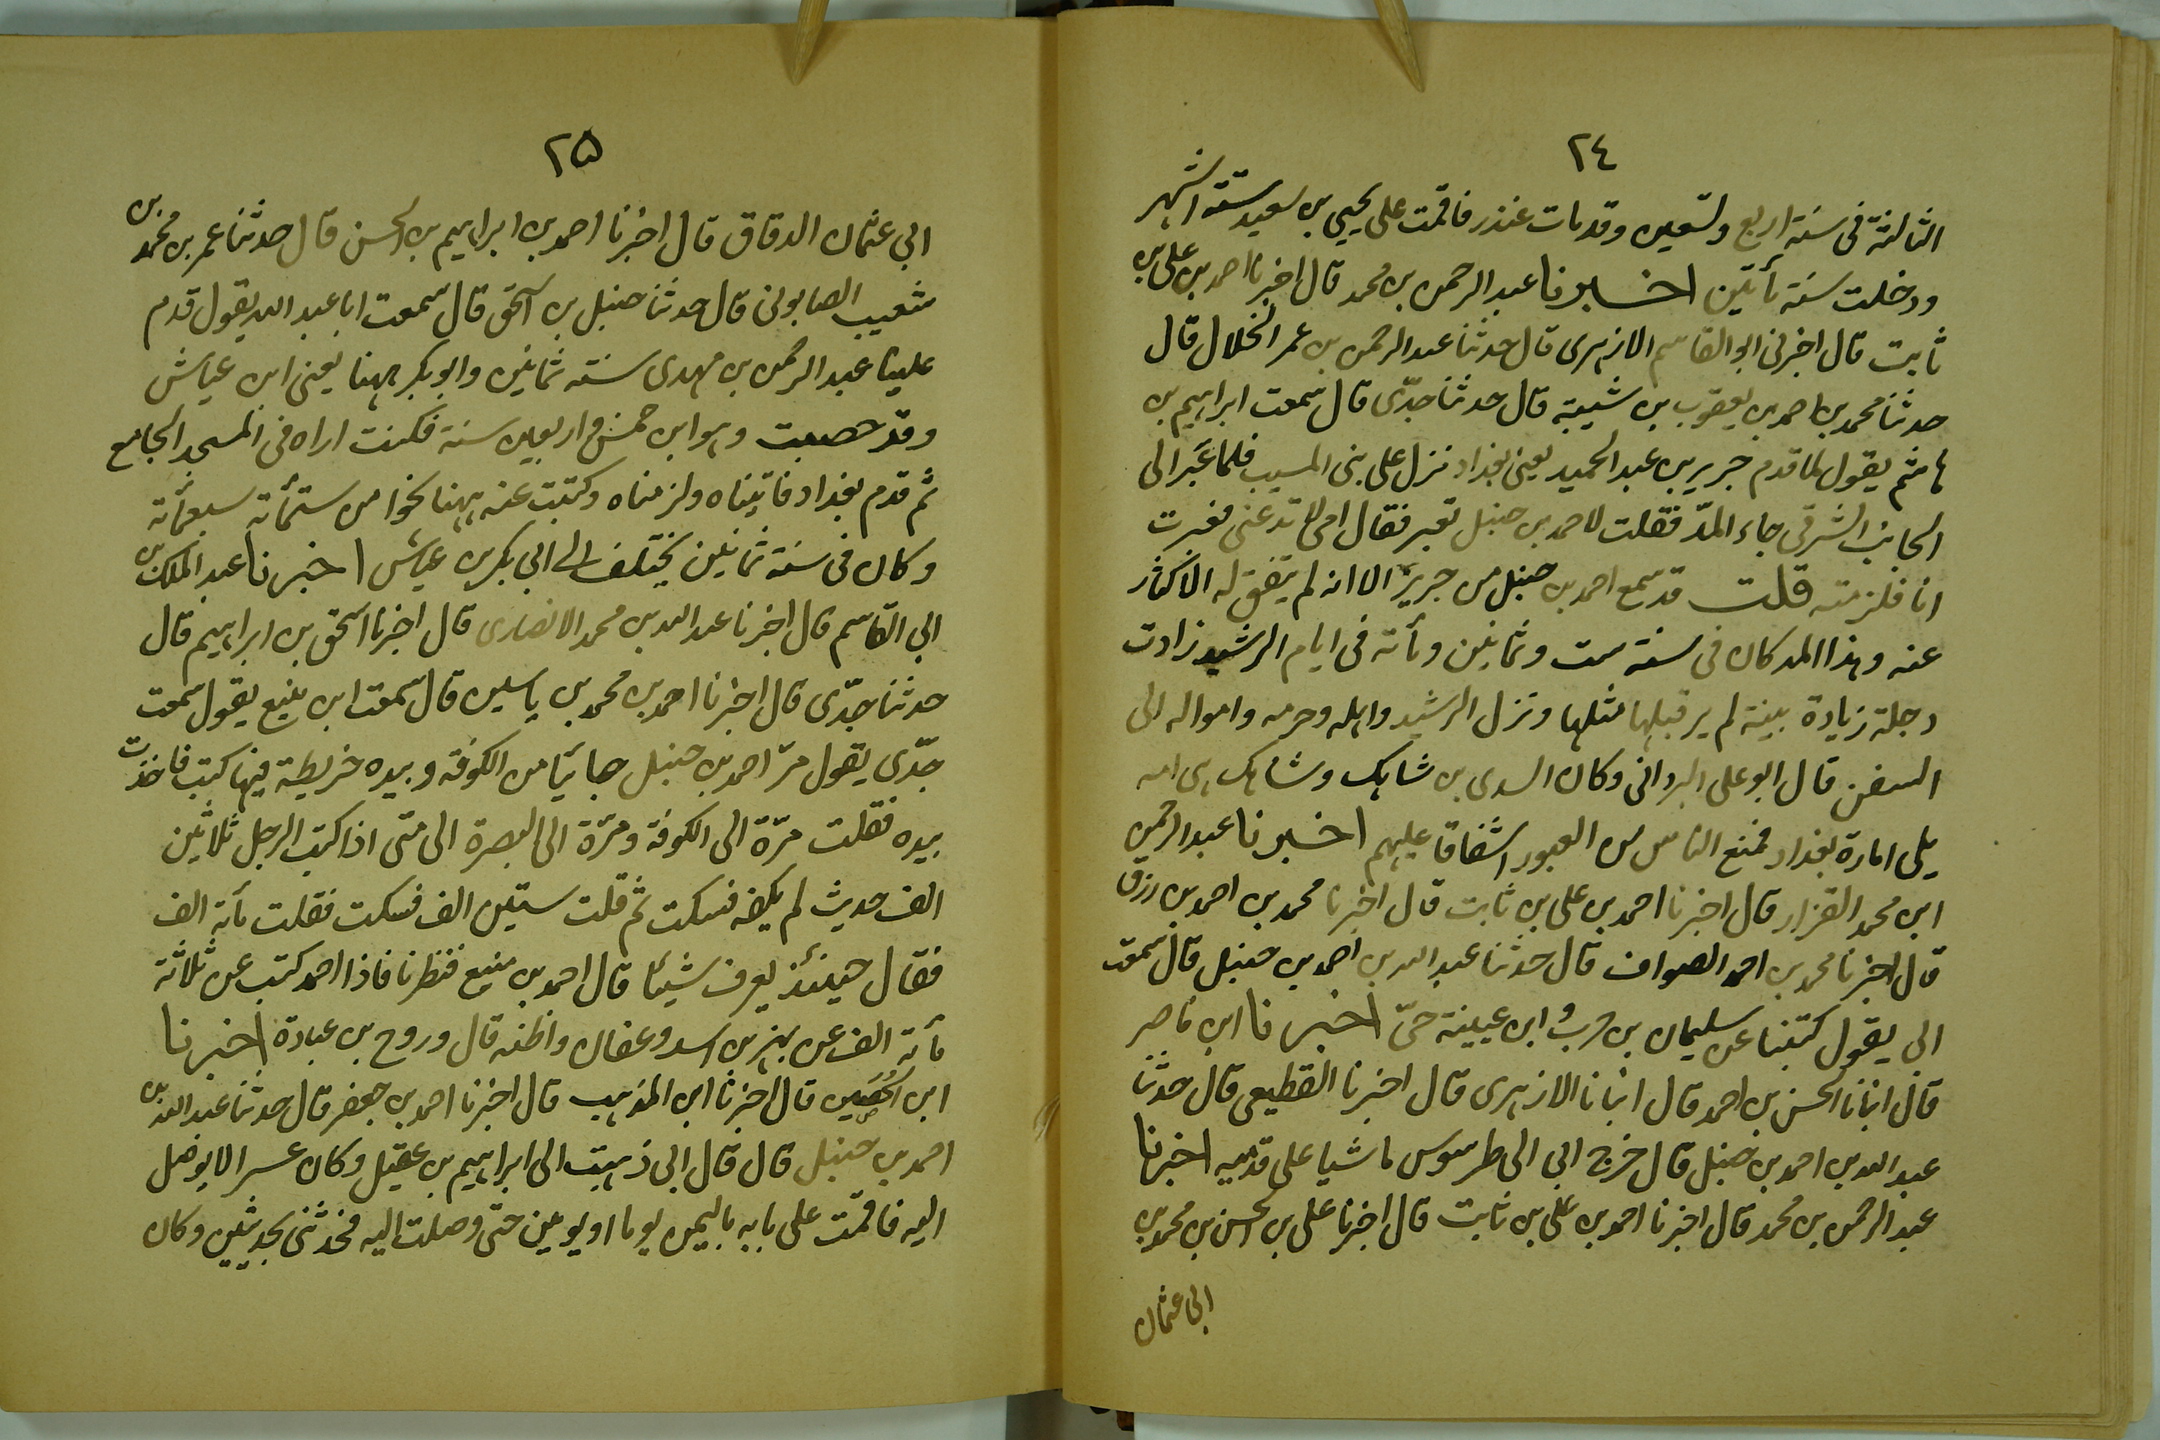 ٢٤
الثالثة فى سنة اربع وتسعين وقد مات غندر فاقمت على يحيى بن سعيد ستة اشهر
ودخلت سنة مأتين اخبرنا عبد الرحمن بن محمد قال اخبرنا احمد بن على بن
ثابت قال اخبرنى ابو القاسم الازهرى قال حدثنا عبد الرحمن بن عمر الخلال قال
حدثنا محمد بن احمد بن يعقوب بن شيبة قال حدثنا جدّى قال سمعت ابراهيم بن
هاشم يقول لما قدم جرير بن عبد الحميد يعنى بغداد نزل على بنى المسيب فلما عَبَر الى
الجانب الشرقى جاء المدّ فقلت لاحمد بن حنبل تعبر فقال امى لا تدعنى فعبرت
انا فلزمته قلت قد سمع احمد بن حنبل من جرير الا انه لم يتفق له الاكثار
عنه وهذا المد كان فى سنة ست وثمانين ومأته فى ايام الرشيد زادت
دجلة زيادة بينة لم ير قبلها مثلها ونزل الرشيد واهله وحرمه وامواله الى
السفن قال ابو على البردانى وكان السدى بن شاهك وشاهك هى امه
يلى امارة بغداد فمنع الناس من العبور اشفاقا عليهم اخبرنا عبد الرحمن
ابن محمد القزار قال اخبرنا احمد بن على بن ثابت قال اخبرنا محمد بن احمد بن رزق
قال اخبرنا محمد بن احمد الصواف قال حدثنا عبد الله بن احمد بن حنبل قال سمعت
ابى يقول كتبنا عن سليمان بن حرب وابن عيينة حىّ اخبرنا ابن ناصر
قال انبانا الحسن بن احمد قال انبانا الازهرى قال اخبرنا القطيعى قال حدثنا
عبد الله بن احمد بن حنبل قال خرج ابى الى طرسوس ماشيا على قدميه اخبرنا
عبد الرحمن بن محمد قال اخبرنا احمد بن على بن ثابت قال اخبرنا على بن الحسن بن محمد بن
ابى عثمان
٢٥
ابى عثمان الدقاق قال اخبرنا احمد بن ابراهيم بن الحسن قال حدثنا عمر بن محمد بن
شعيب الصابونى قال حدثنا حنبل بن اسحق قال سمعت ابا عبد الله يقول قدم
علينا عبد الرحمن بن مهدى سنة ثمانين وابو بكر ههنا يعنى ابن عياش
وقد خضبت وهو ابن خمس واربعين سنة فكنت اراه فى المسجد الجامع
ثم قدم بغداد فاتيناه ولزمناه وكتبت عنه ههنا نحوا من ستمأته سبعمأته
وكان فى سنة ثمانين يختلف الى ابى بكر بن عياش اخبرنا عبد الملك بن
ابى القاسم قال اخبرنا عبد الله بن محمد الانصارى قال اخبرنا اسحق بن ابراهيم قال
حدثنا جدّى قال اخبرنا احمد بن محمد بن ياسين قال سمعت ابن منيع يقول سمعت
جدّى يقول مرّ احمد بن حنبل جائيا من الكوفة وبيده خريطة فيها كتب فاخذت
بيده فقلت مرّة الى الكوفة ومرّة الى البصرة الى متى اذا كتب الرجل ثلاثين
الف حديث لم يكفه فسكت ثم قلت ستين الف فسكت فقلت مأته الف
فقال حينئذ يعرف شيئا قال احمد بن منيع فنظرنا فاذا احمد كتب عن ثلاثة
مأته الف عن بهز بن اسد وعفان واظنه قال وروح بن عبادة اخبرنا
ابن الحُصَين قال اخبرنا ابن المذهب قال اخبرنا احمد بن جعفر قال حدثنا عبد الله بن
احمد بن حنبل قال قال ابى ذهبت الى ابراهيم بن عقيل وكان عسرا لا يوصل
اليه فاقمت على بابه باليمن يوما او يومين حتى وصلت اليه فحدثنى بحديثين وكان